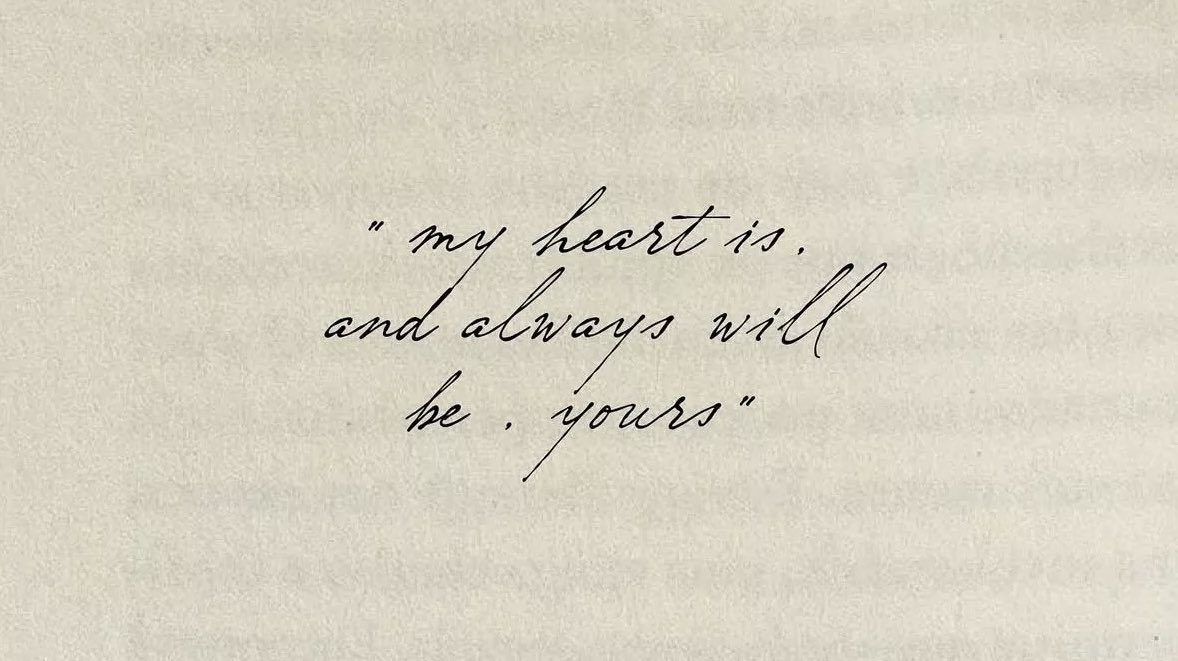 " my heart is,
and always will
be , yours"